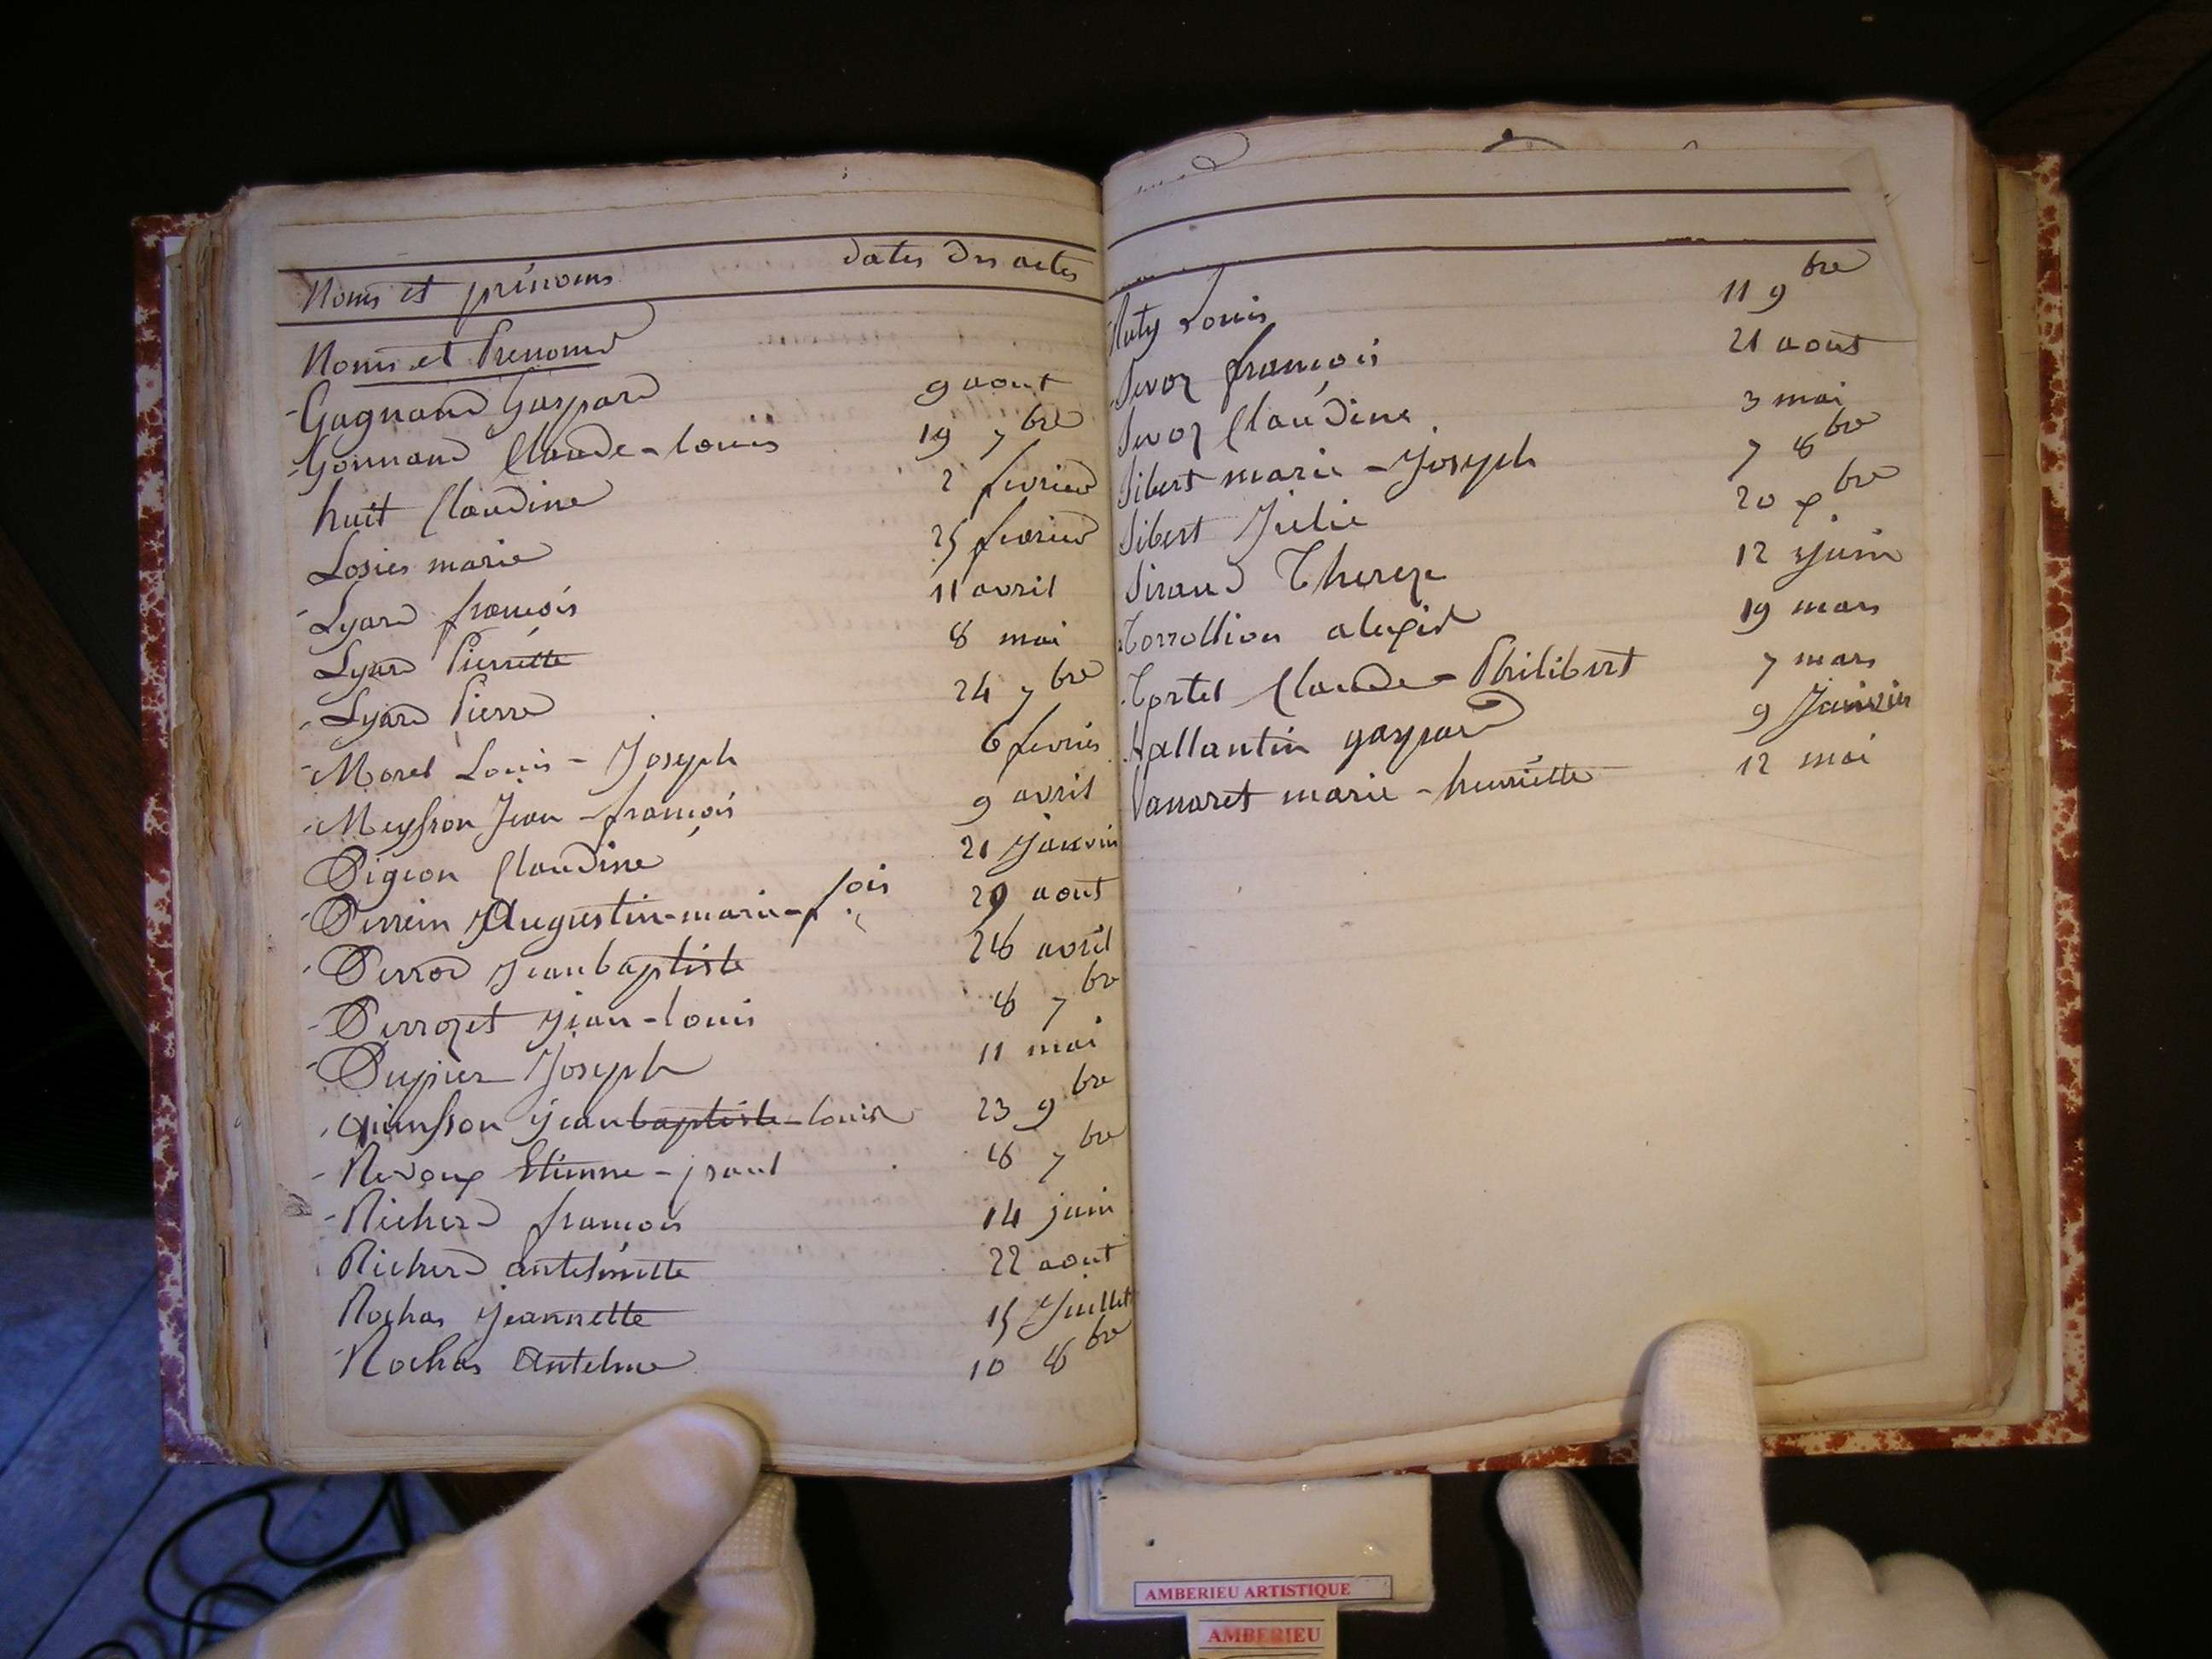 Noms et prénoms dates des actes
Noms et Prenoms
Gagnand Gaspard 9 aout
Gonnand Claude-louis 19 7bre
huit Claudine 2 fevrier
Losier marie 25 fevrier
Lyard françois 11 avril
Lyard Pierrette 8 mai
Lyard Pierre 24 7bre
Morel Louis-Joseph 6 fevrier
Meysson Jean-françois 9 avril
Pigeon Claudine 21 Janvier
Perrein Augustin-marie-fois 29 aout
Perrod Jean baptiste 28 avril
Perrozet Jean-louis 8 7bre
Pupier Joseph 11 mai
jean baptiste-louis 23 9bre
Revoux Etienne-paul 8 7bre
Richerd françois 14 juin
Richerd antelmette 22 aout
Rochas Jeannette 15 Juillet
Rochas Antelme 10 8bre
Ruty Louis 11 9bre
Sevoz françois 21 aout
Sevoz Claudine 3 mai
Sibert marie-Joseph 7 8bre
Sibert Julie 20 xbre
Siraud Thereze 12 juin
Torrollion alexis 19 mars
Tortel Claude-Philibert 7 mars
Vallantin gaspard 9 Janvier
Vanaret marie-henriette 12 mai
AMBERIEU ARTISTIQUE
AMBERIEU